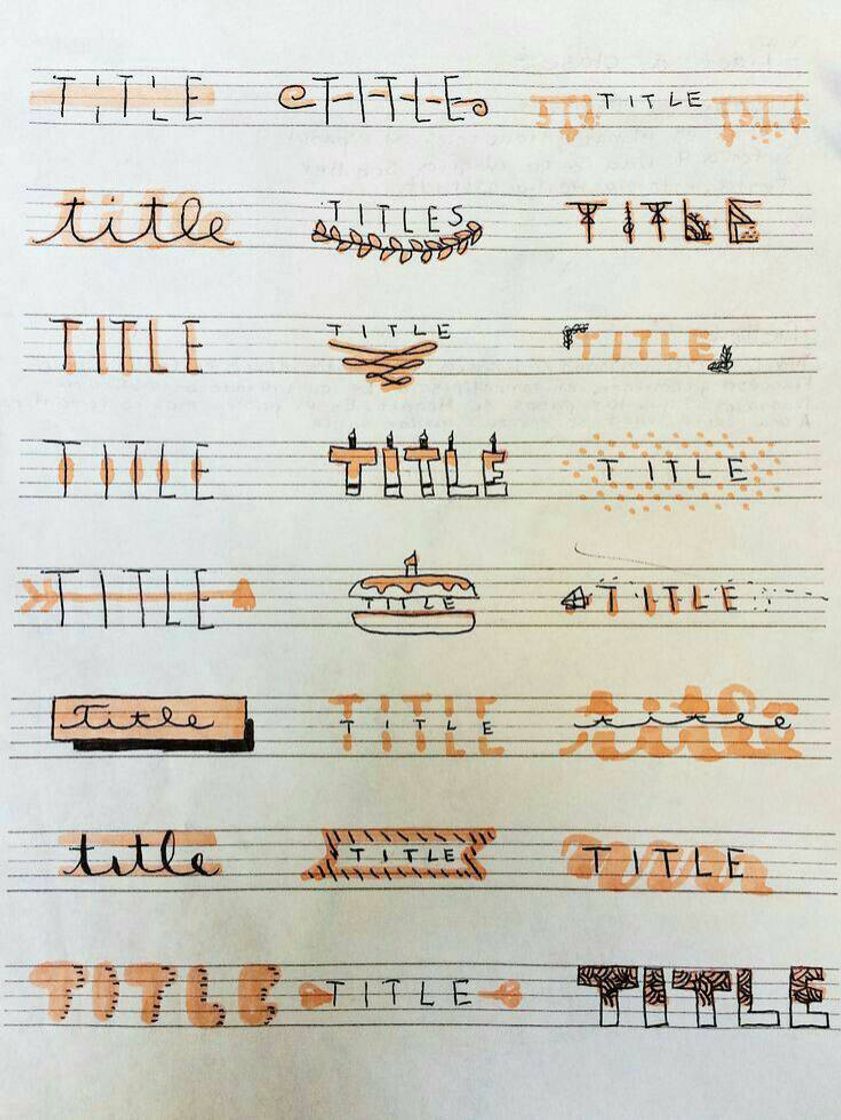 TITLE TITLE TITLE
title TITLES TITLE
TITLE TITLE TITLE
TITLE TITLE TITLE
TITLE TITLE TITLE
Title TITLE title
title TITLE TITLE
TITLE TITLE TITLE